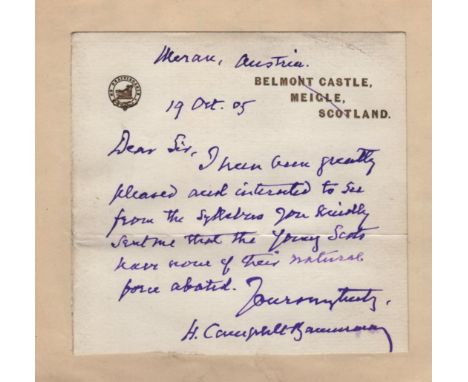 Meran, Austria.
BELMONT CASTLE,
MEIGLE,
SCOTLAND.
19 Oct. 05
Dear Sir,
I have been greatly
pleased and interested to see
from the Syllabus you kindly
sent me that the Young Scots
have none of their natural
force abated.
Yours very truly,
H. Campbell Bannerman